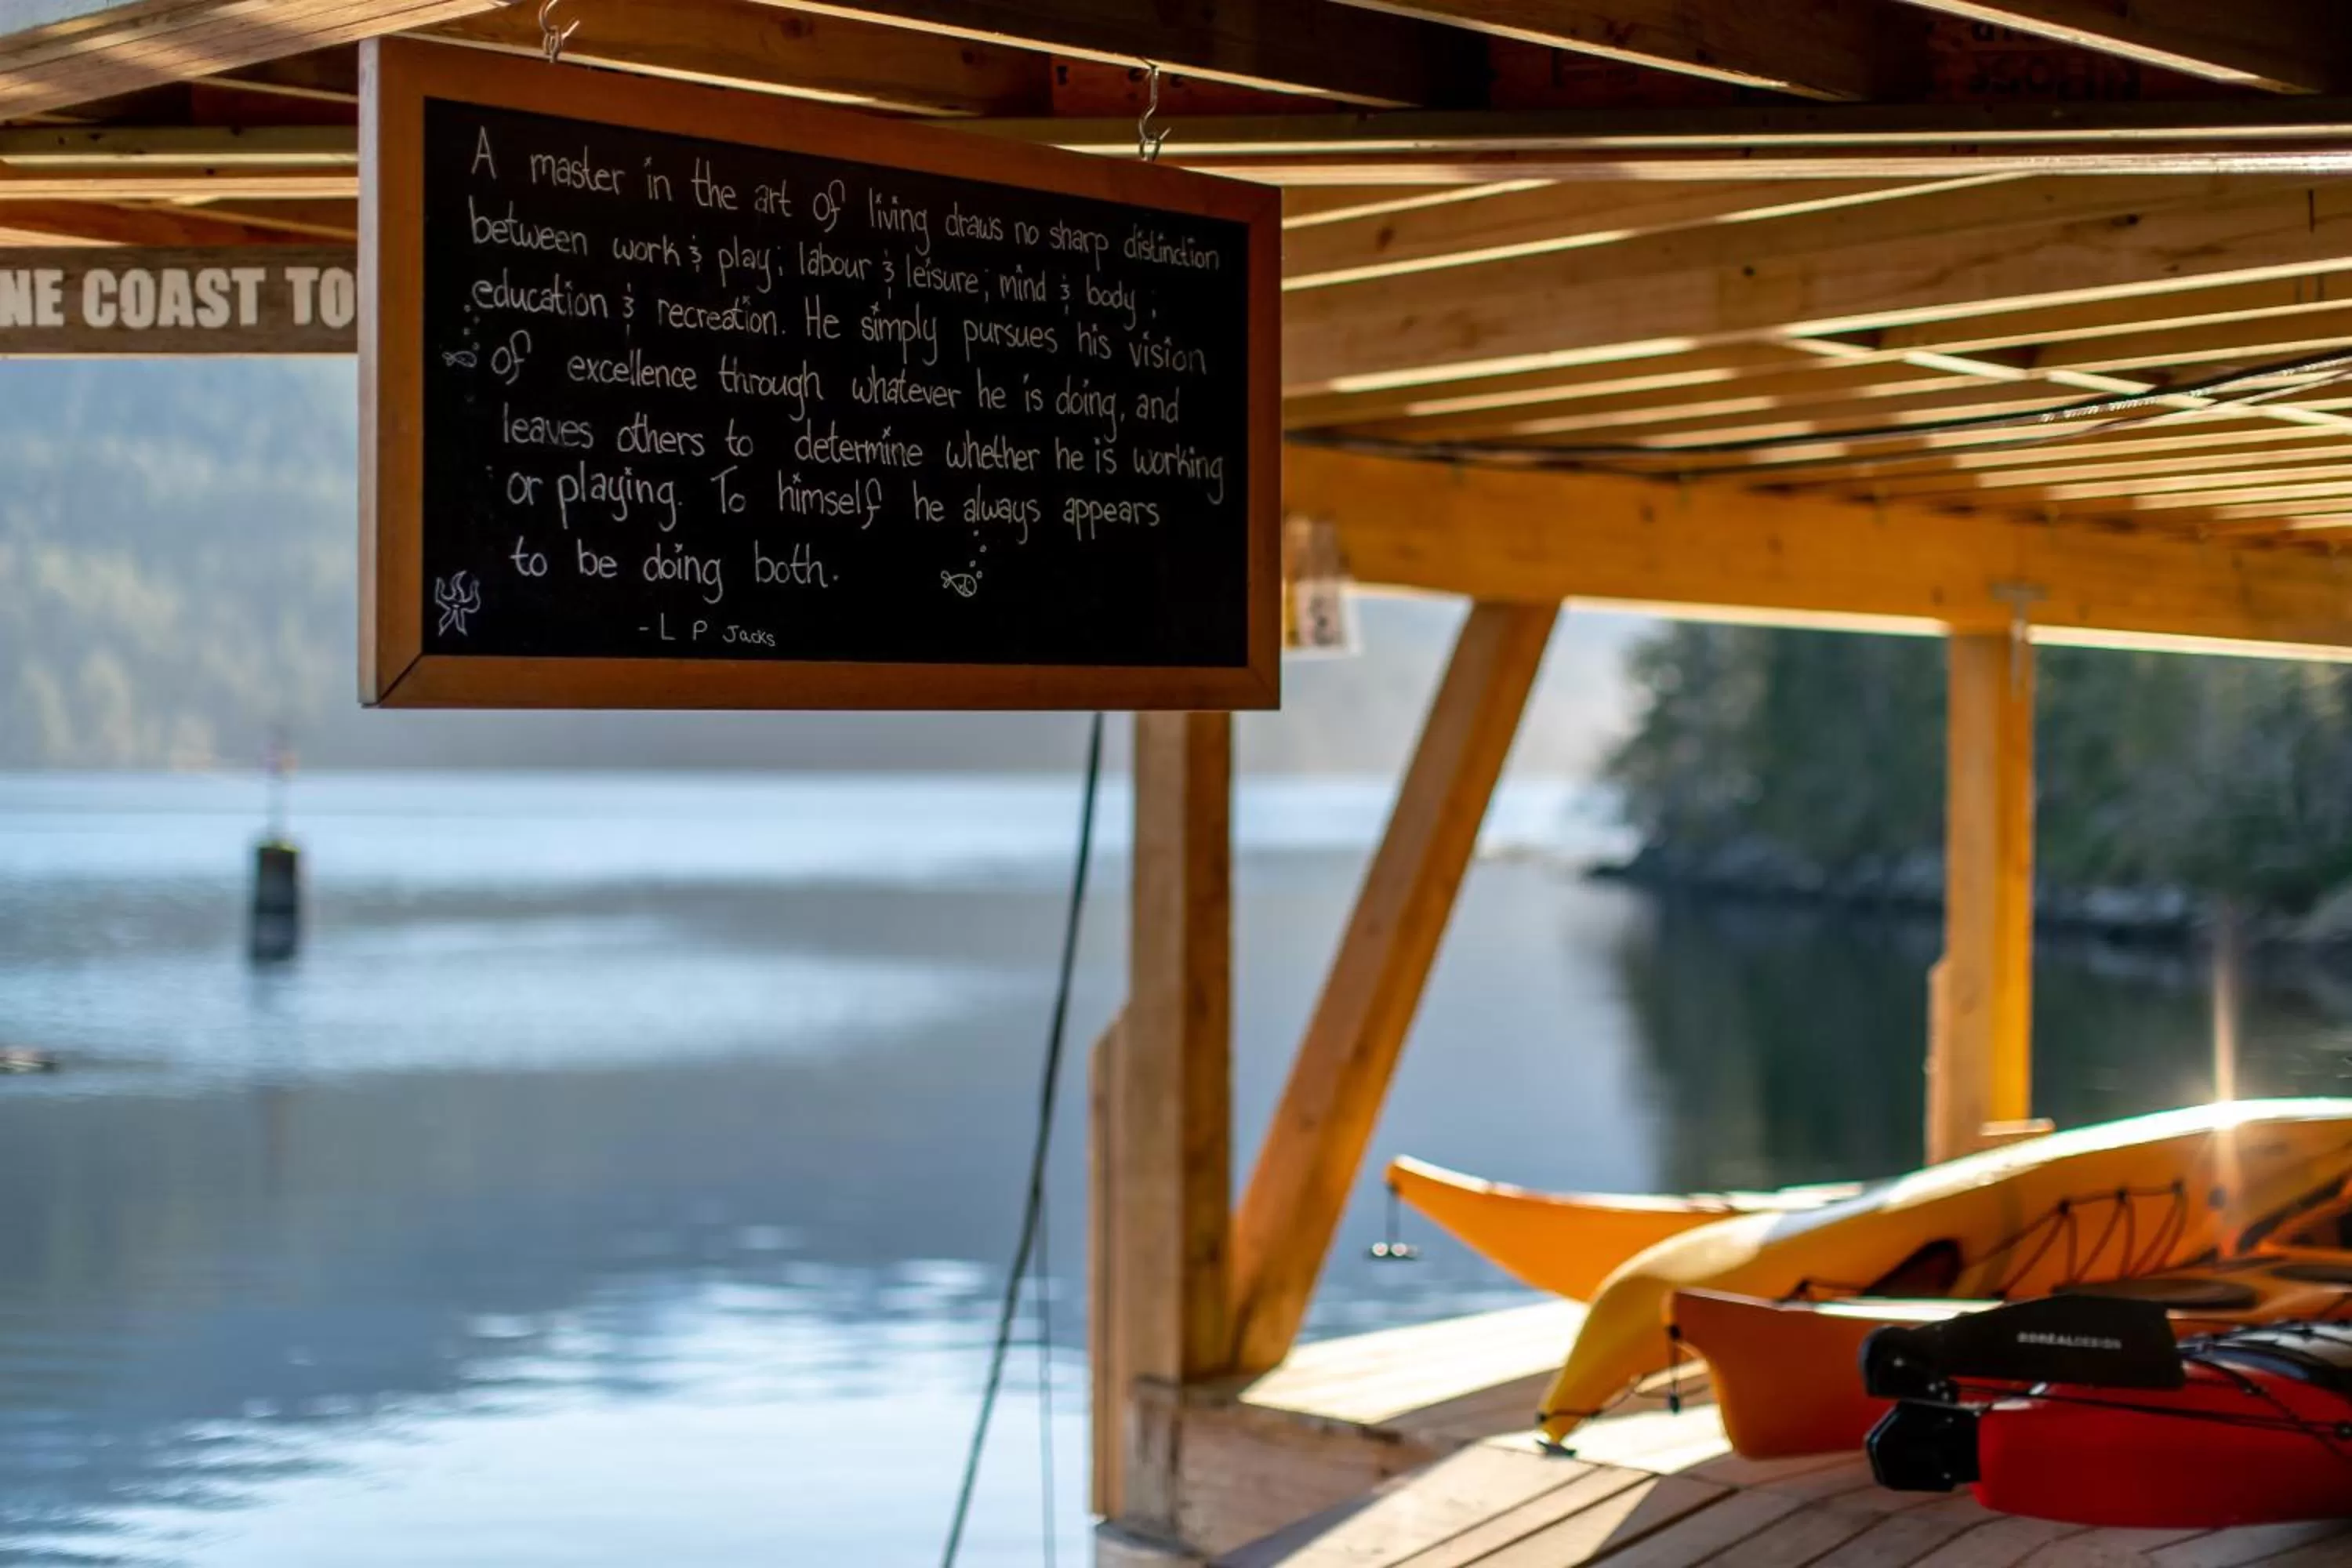 NE COAST TO
A master in the art of living draws no sharp distinction
between work & play; labour & leisure; mind & body;
education & recreation. He simply pursues his vision
of excellence through whatever he is doing, and
leaves others to determine whether he is working
or playing. To himself he always appears
to be doing both.
- L P Jacks
BOREALDESIGN